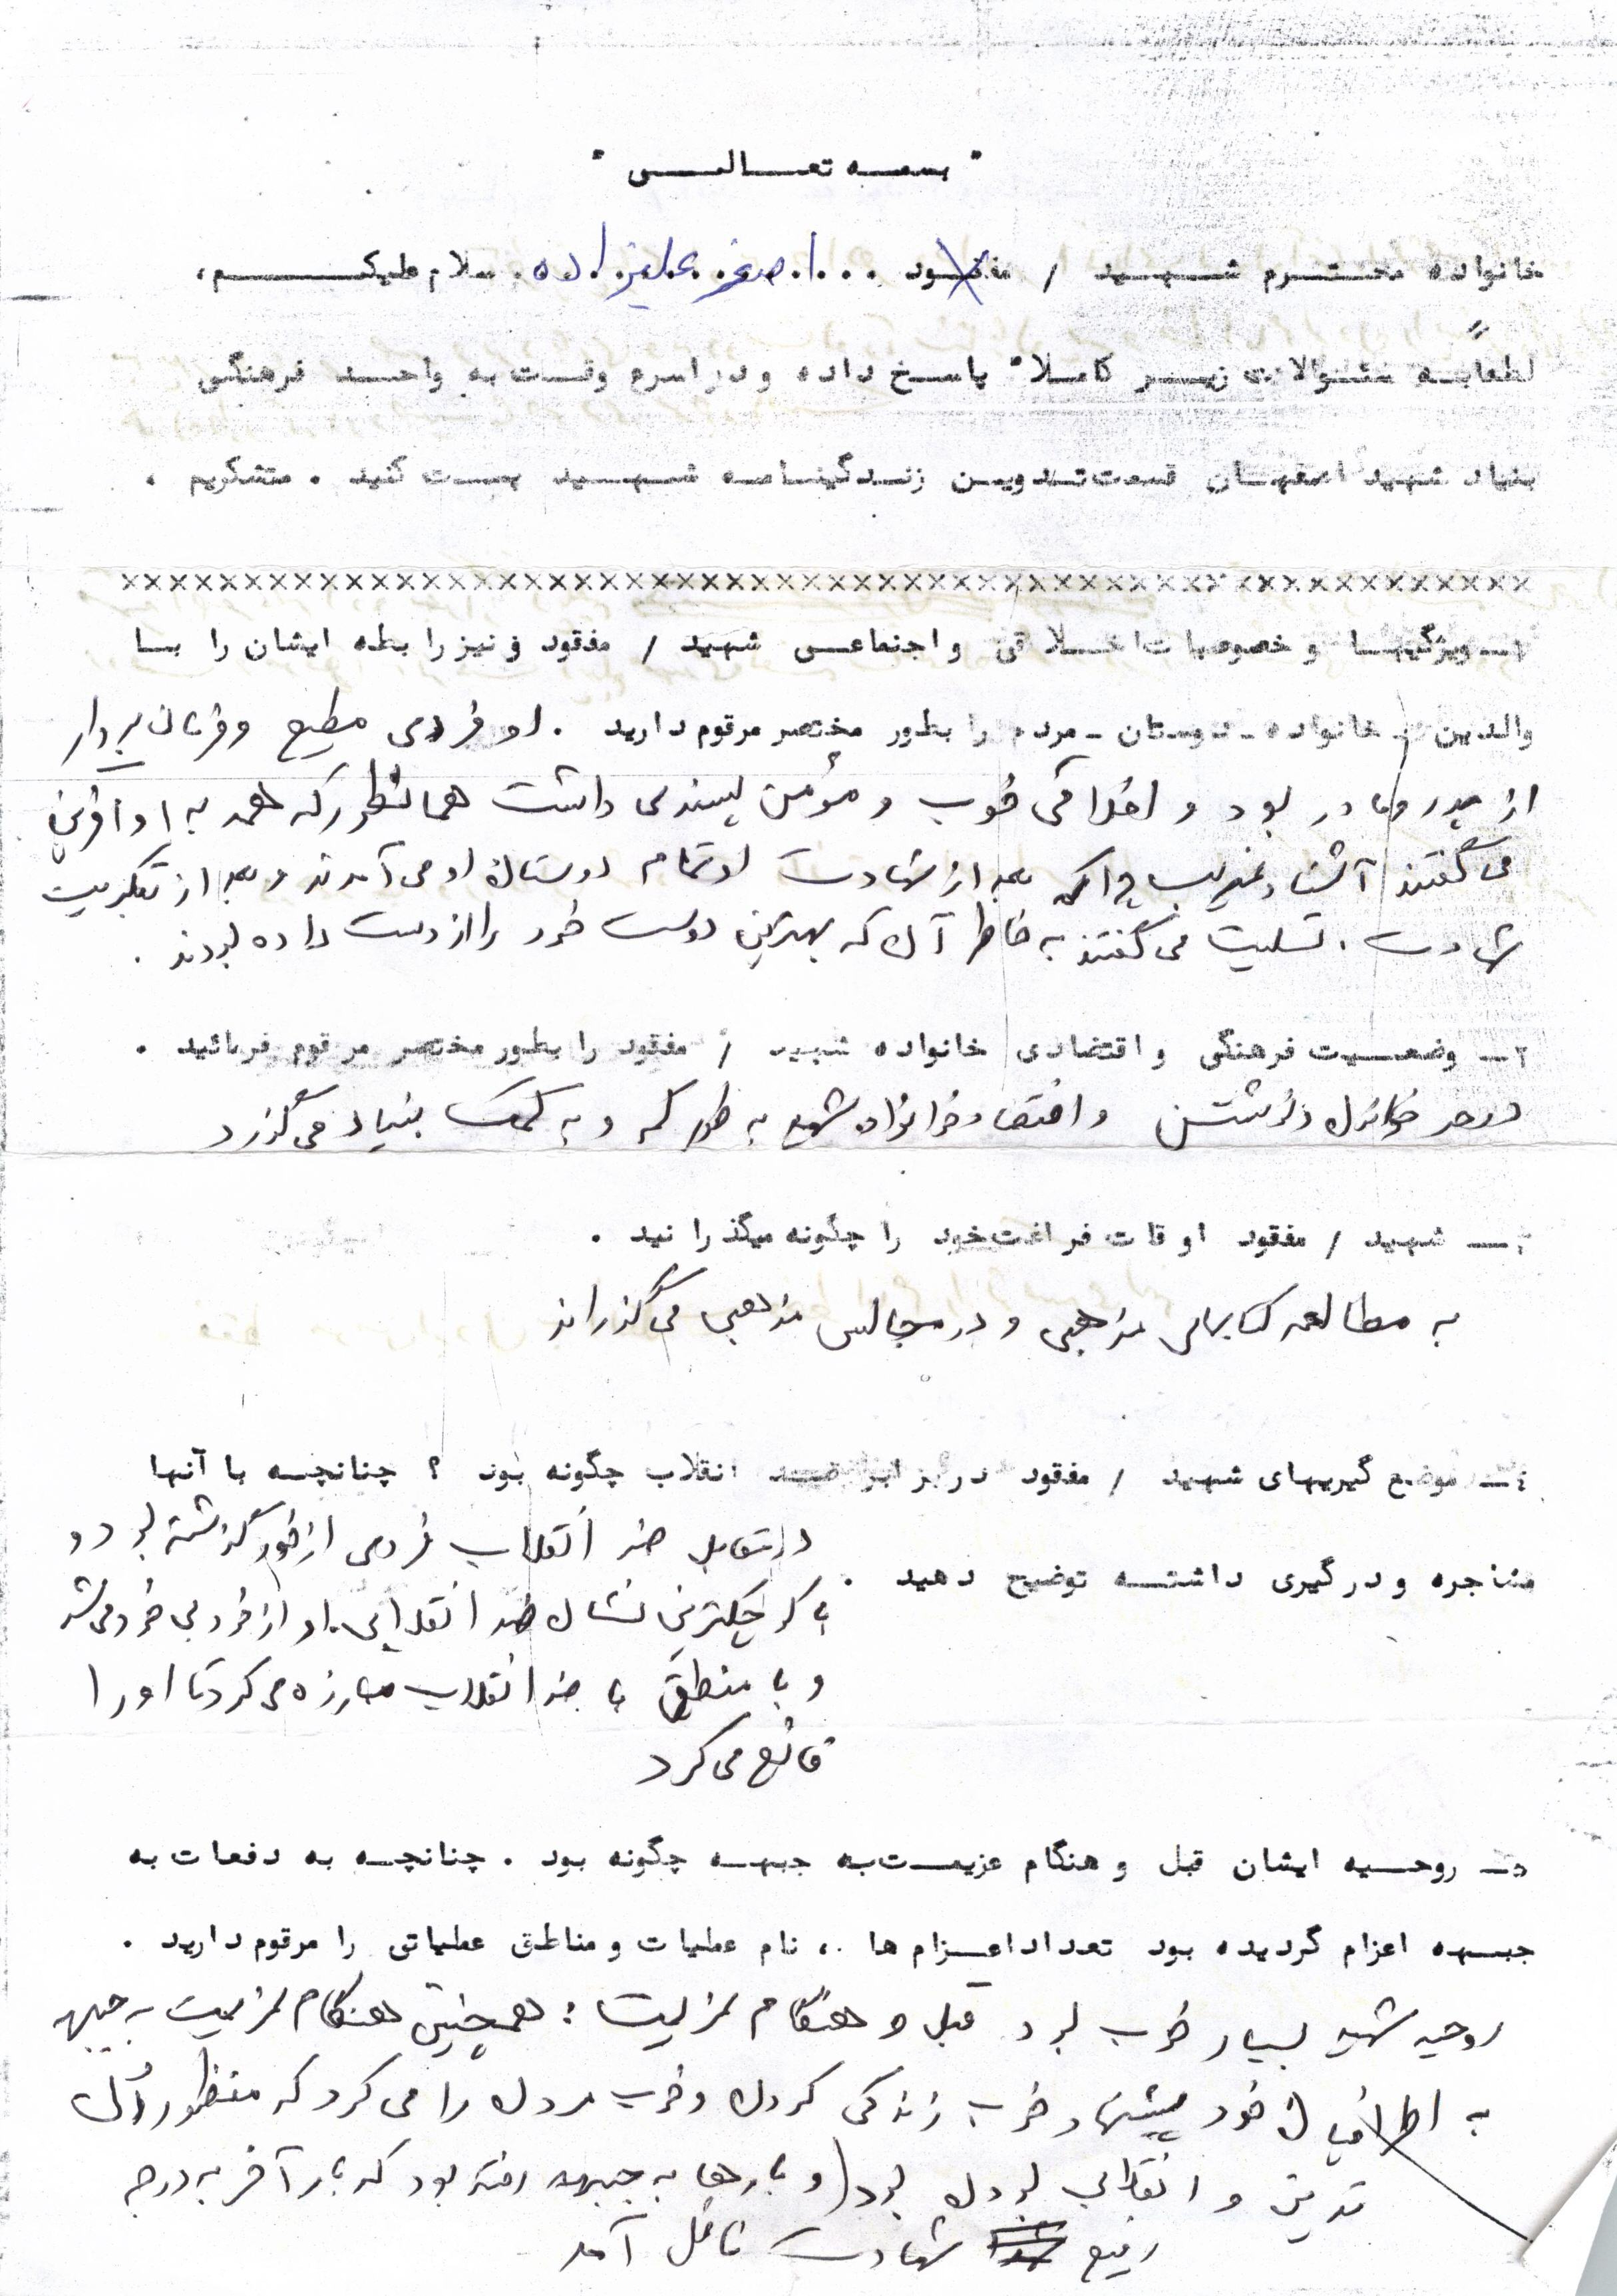 " بسمه تعالی "
خانواده محترم شهید / مفقود ... اصغر علیزاده . سلام علیکم ،
لطفا به سئوالات زیر کاملا" پاسخ داده و در اسرع وقت به واحد فرهنگی
بنیاد شهید اصفهان قسمت تدوین زندگینامه شهید پست کنید . متشکریم .
××××××××××××××××××××××××××××××××××××××××××××××××××××××××
۱ــ ویژگیها و خصوصیات اخلاقی و اجتماعی شهید / مفقود و نیز رابطه ایشان را با
والدین ـ خانواده ـ دوستان ـ مردم را بطور مختصر مرقوم دارید . او فردی مطیع و فرمان بردار
از پدر و مادر بود و اخلاقی خوب و مؤمن پسندی داشت همانطور که همه به او آفرین
می گفتند آشنا و غریب چرا که بعد از شهادت او تمام دوستان او می آمدند و بعد از تبریک
شهادت ، تسلیت می گفتند به خاطر آن که بهترین دوست خود را از دست داده بودند .
۲ــ وضعیت فرهنگی و اقتصادی خانواده شهید / مفقود را بطور مختصر مرقوم فرمائید .
در حد خواندن و نوشتن و اقتصاد خانواده شهید به طور کم و به کمک بنیاد می گذرد
۳ــ شهید / مفقود اوقات فراغت خود را چگونه میگذرانید .
به مطالعه کتابهای مذهبی و در مجالس مذهبی می گذراند
٤ــ موضع گیریهای شهید / مفقود در برابر ضد انقلاب چگونه بود ؟ چنانچه با آنها
مشاجره و درگیری داشته توضیح دهید .
در مقابل ضد انقلاب فردی از خود گذشته بود و
با کوچکترین نشان ضد انقلابی او از خود بی خود می شد
و با منطق با ضد انقلاب مبارزه می کرد تا او را
قانع می کرد
۵ــ روحیه ایشان قبل و هنگام عزیمت به جبهه چگونه بود . چنانچه به دفعات به
جبهه اعزام گردیده بود تعداد اعزام ها ، نام عملیات و مناطق عملیاتی را مرقوم دارید .
روحیه شهید بسیار خوب بود قبل و هنگام عزیمت ؛ همچنین هنگام عزیمت به جبهه
به اطرافیان خود پیشنهاد خوب زندگی کردن و خوب مردن را می کرد که منظور آن
تدین و انقلابی بودن بود ( و بارها به جبهه رفته بود که بار آخر به درجه
رفیع شهادت نائل آمد